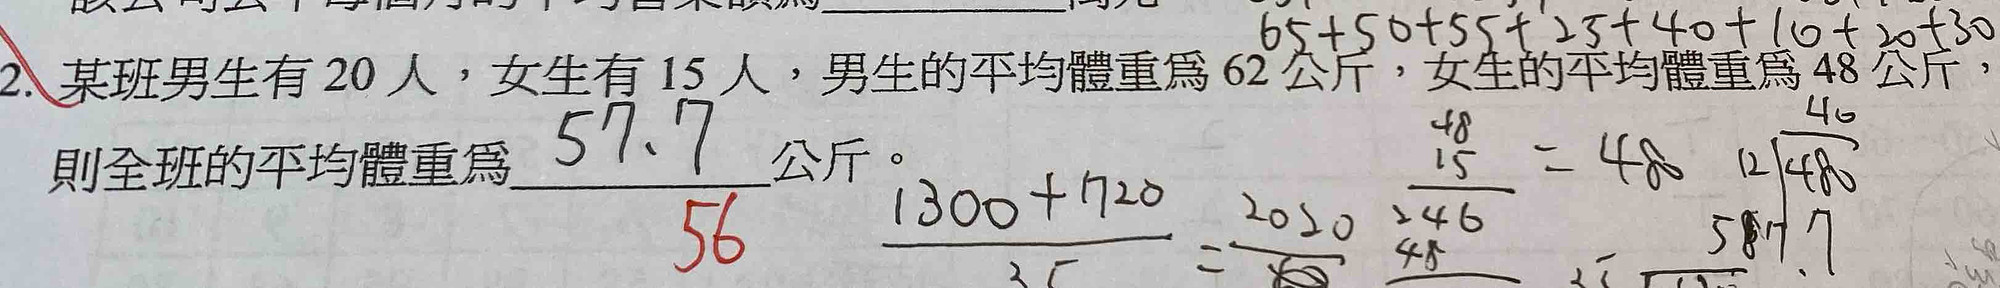 65+50+55+25+40+10+20+30
2. 某班男生有 20 人，女生有 15 人，男生的平均體重為 62 公斤，女生的平均體重為 48 公斤，
則全班的平均體重為 57.7 公斤。
56
1300+720
35
=
2020
48
15
246
48
= 480
40
12 480
7.7